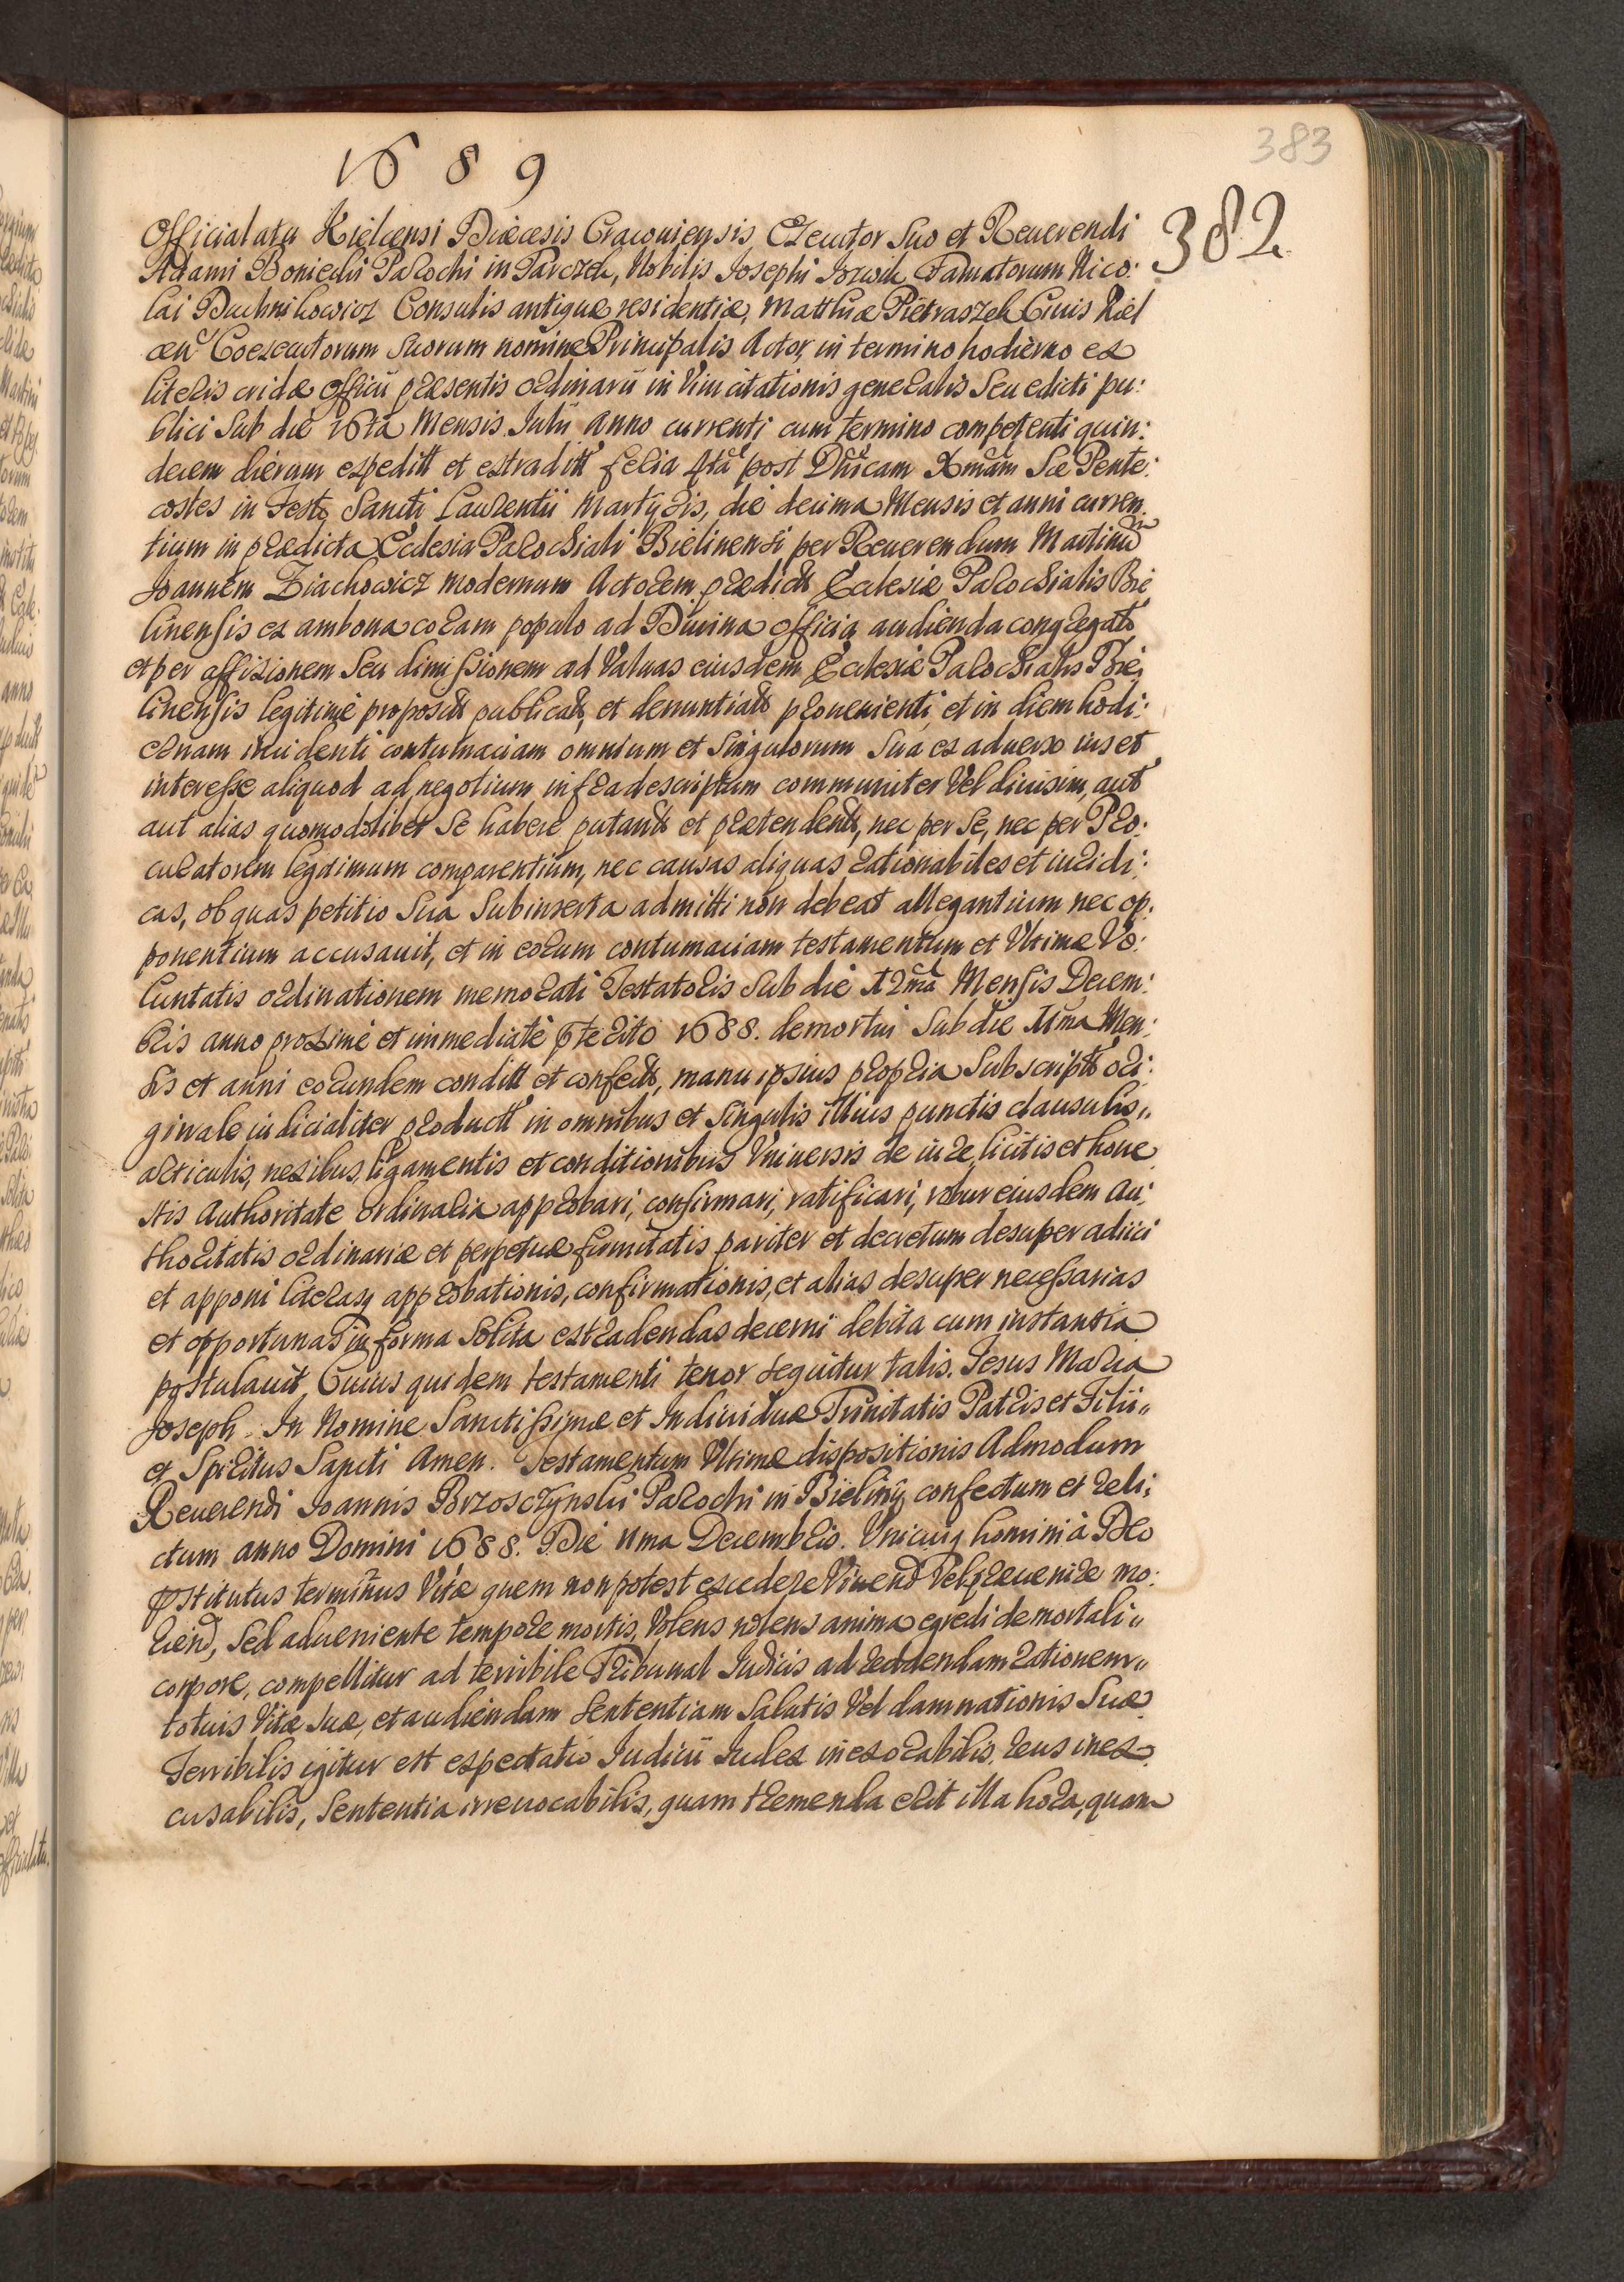 1689
383
382
Officialatu Kielcensi Diæcesis Cracouiensis, Executor Suo et Reuerendi
Adami Boniecki Parochi in Tarczek, Nobilis Josephi Famatorum Nico:
lai Duchnikowicz Consulis antiquæ residentiæ, Matthiæ Pietraszek Ciuis Kiel
cen Coexecutorum Suorum nomine Principalis Actor, in termino hodierno ex
literis cridæ officii præsentis ordinarii in Vim citationis generalis Seu edicti pu:
blici Sub die 16ta Mensis Julii Anno currenti cum termino competenti quin:
decem dierum expeditt et extraditt feria 4ta post Dnicam Xmam Sæ Pente:
costes in Festo Sancti Laurentii Martyris, die decima Mensis et anni curren
tium in prædicta Ecclesia Parochiali Bielinensi per Reuerendum Martinū
Joannem Ziachowicz modernum Actorem prædictæ Ecclesiæ Parochialis Bie
linensis ex ambona coram populo ad Diuina officia audienda congregato
et per affixionem Seu dimissionem ad Valuas eiusdem Ecclesiæ Parochialis Bie
linensis legitimè proposit publicat, et denuntiat prouenienti, et in diem hodi:
ernam incidenti contumaciam omnium et Singulorum Sua ex aduerso ius et
interesse aliquod ad negotium infrascriptum communiter Vel diuisim, aut
aut alias quomodolibet Se habere putant et prætendent, nec per Se, nec per Pro:
curatorem legitimum comparentium, nec causas aliquas rationabiles et iuridi:
cas, ob quas petitio Sua Subinserta admitti non debeat allegantium nec op:
ponentium accusauit, et in eorum contumaciam testamentum et Vltimæ Vo:
luntatis ordinationem memorati Testatoris Sub die 12ma Mensis Decem:
bris anno proximè et immediatè pterito 1688. demortui Sub die 11ma Men:
sis et anni eorundem conditt et confect, manu ipsius propria Subscript ori:
ginale iudicialiter productt in omnibus et Singulis illius punctis clausulis,,
articulis, nexibus, ligamentis et conditionibus Vniuersis de iure licitis et hone
stis Authoritate ordinaria approbari, confirmari, ratificari, robur eiusdem Au:
thoritatis ordinariæ et perpetuæ firmitatis pariter et decretum desuper adiici
et apponi literasq approbationis, confirmationis, et alias desuper necessarias
et opportunas in forma Solita extradendas decerni debita cum instantia
postulauit, Cuius quidem testamenti tenor Sequitur talis. Jesus Maria
Joseph. In Nomine Sanctissimæ et Indiuiduæ Trinitatis Patris et Filii,,
et Spiritus Sancti Amen. Testamentum Vltimæ dispositionis Admodum
Reuerendi Joannis Borzosczynski Parochi in Bieliny confectum et reli:
ctum anno Domini 1688. Die 11ma Decembris. Vnicuiq homini à Deo
pstitutus terminus Vitæ quem non potest excedere Viuend Vel præuenire mo:
riend, Sed adueniente tempore mortis, Volens nolens anima egredi de mortali,,
corpore, compellitur ad terribile Tribunal Judicis ad reddendam rationem,,
totius Vitæ Suæ, et audiendam Sententiam Salutis Vel damnationis Suæ
Terribilis igitur est expectatio Judicii Judex inexorabilis, reus inex
cusabilis, Sententia irreuocabilis, quam tremenda erit illa hora, quam